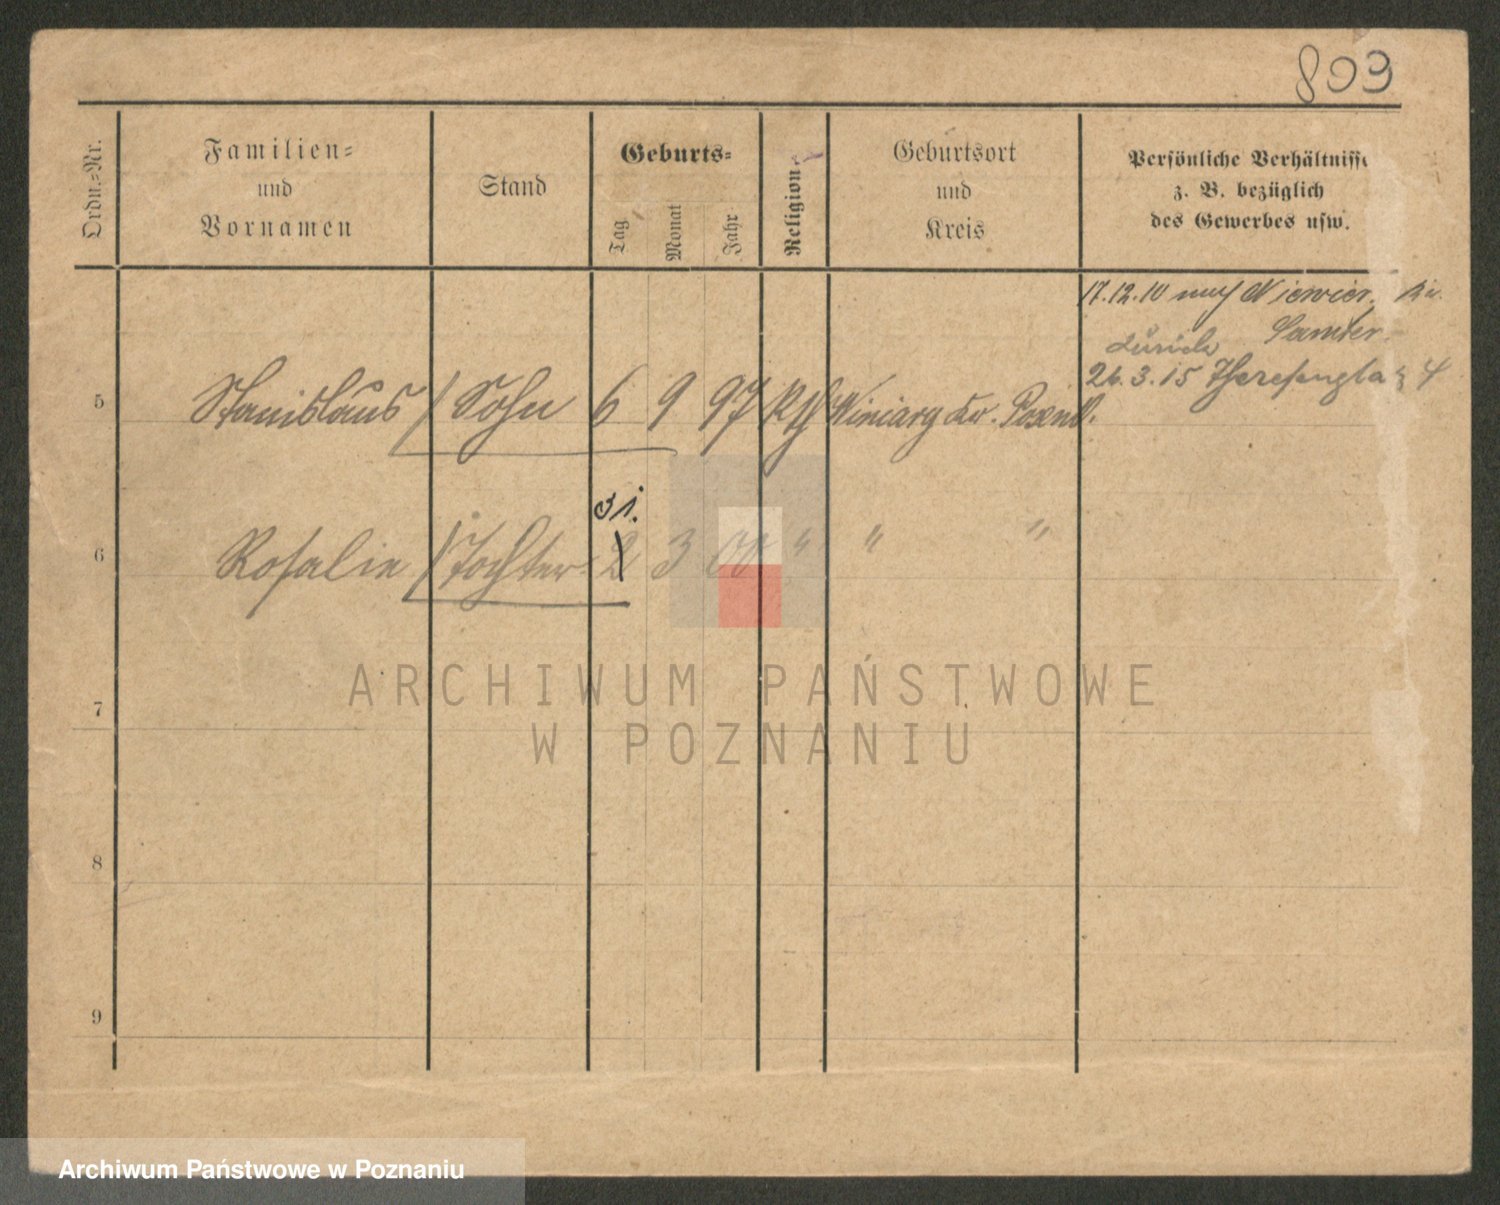 803
Ordn.-Nr.
Familien-
und
Vornamen
Stand
Geburts-
Tag
Monat
Jahr
Religion
Geburtsort
und
Kreis
Persönliche Verhältnisse
z. B. bezüglich
des Gewerbes usw.
17.12.10 nach
Samter
Zürich
26.3.15
5 Stanislaus / Sohn 6 9 97 Kth Winiary Kr. Posen O.
31.
6 Rosalie / Tochter 2 3 00 " " "
7
8
9
ARCHIWUM PAŃSTWOWE
W POZNANIU
Archiwum Państwowe w Poznaniu